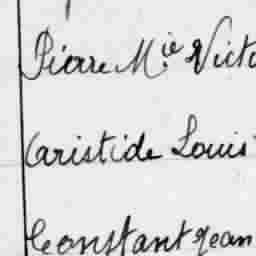 Pierre M.ie Victo
Caristide Louis
Constant Jean